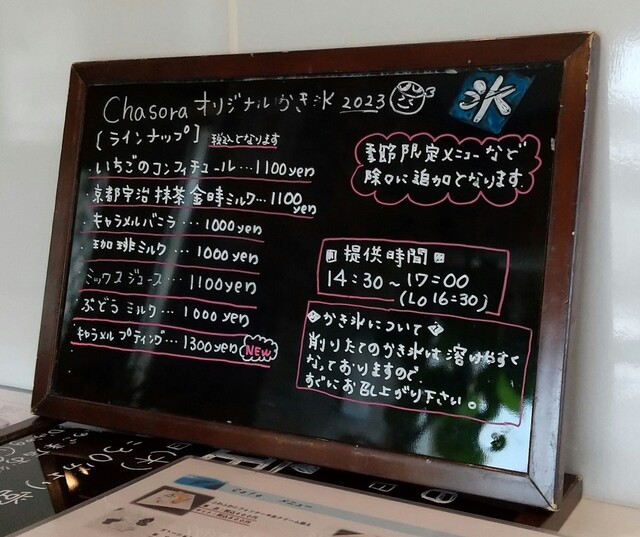 Chasora オリジナルかき氷 2023
氷
[ラインナップ] 税込となります
・いちごのコンフィチュール…1100yen
・京都宇治抹茶金時ミルク…1100yen
・キャラメルバニラ…1000yen
・珈琲ミルク…1000yen
・ミックスジュース…1100yen
・ぶどうミルク…1000yen
・キャラメルプティング…1300yen NEW
季節限定メニューなど
除々に追加となります。
提供時間
14:30~17:00
(LO 16:30)
かき氷について
削りたてのかき氷は溶けやすく
なっておりますので、
すぐにお召し上がり下さい。
Cafe メニュー